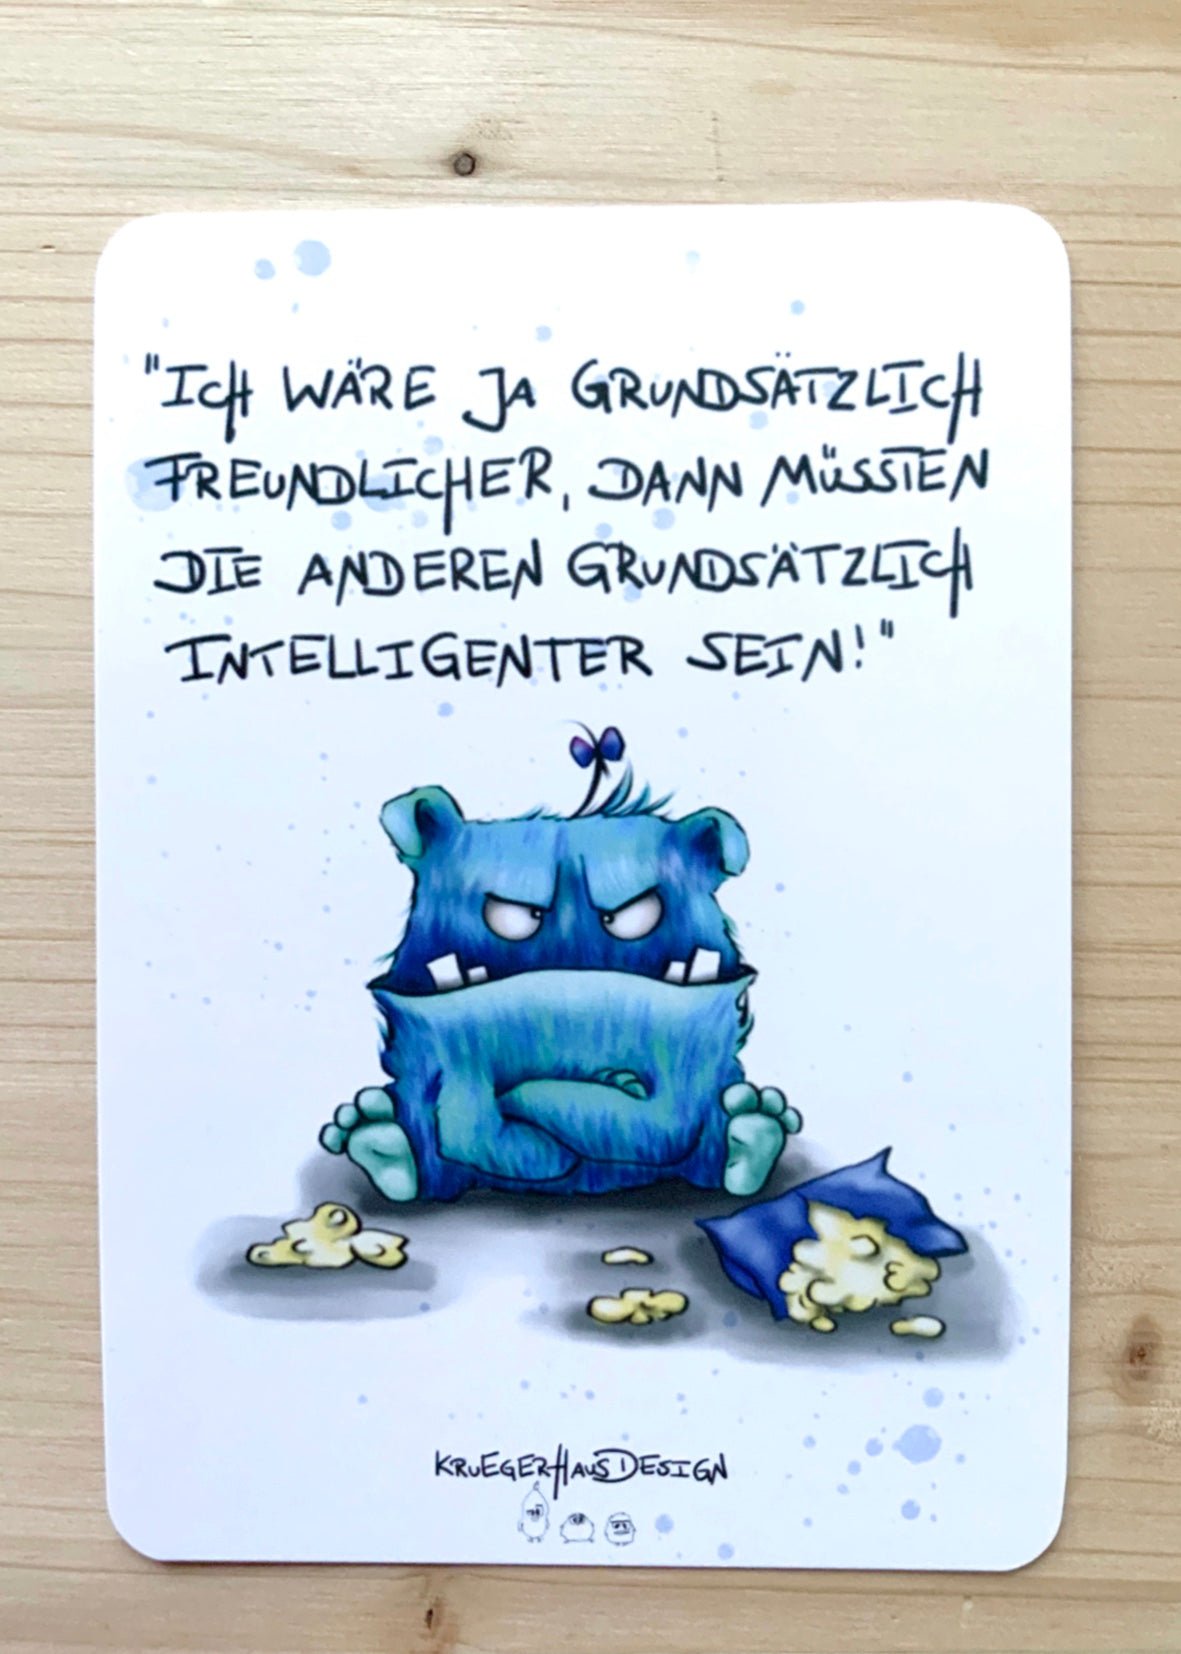 "ICH WÄRE JA GRUNDSÄTZLICH
FREUNDLICHER, DANN MÜSSTEN
DIE ANDEREN GRUNDSÄTZLICH
INTELLIGENTER SEIN!"
KRUEGERHAUSDESIGN